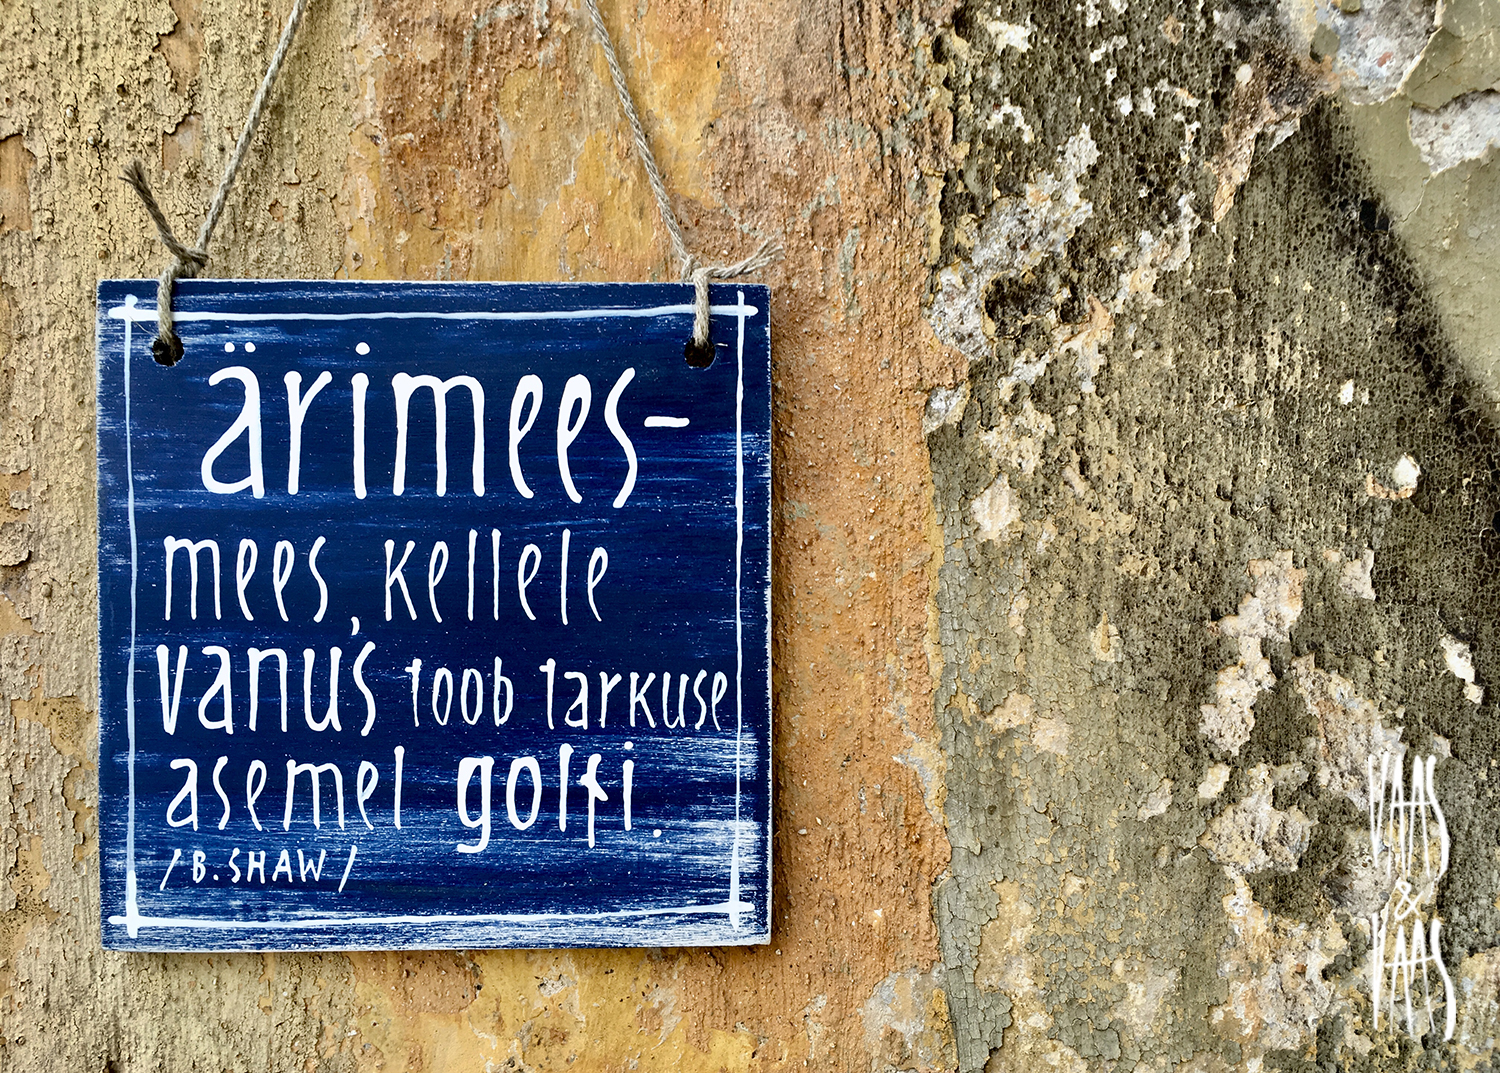 ärimees-
mees, kellele
vanus toob tarkuse
asemel golfi.
/B. SHAW/
VAAS
&
VAAS